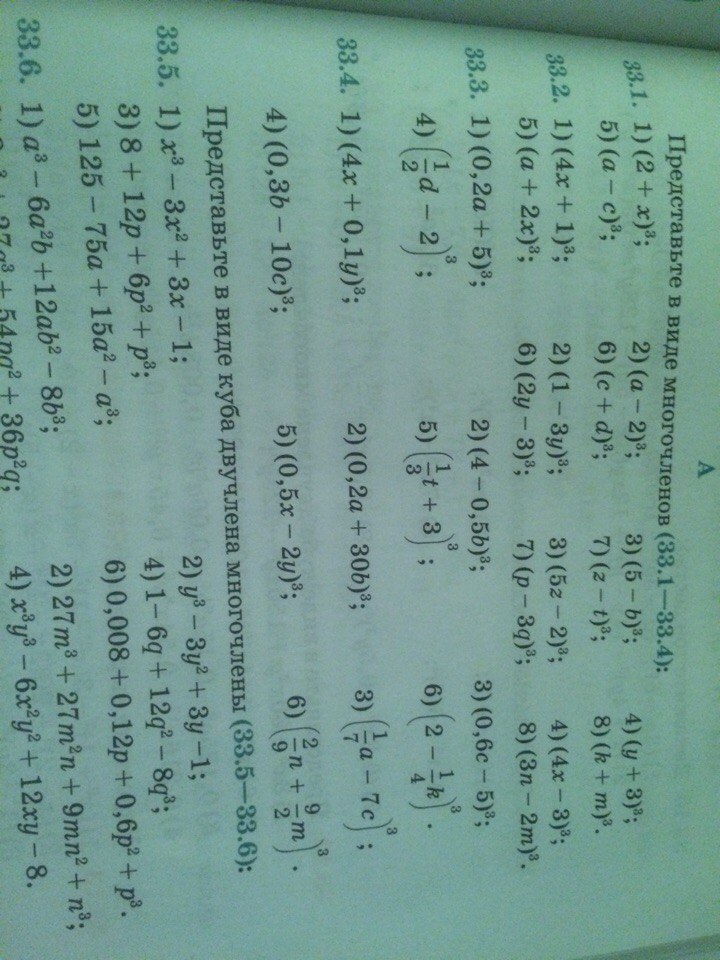 А
Представьте в виде многочленов (33.1—33.4):
33.1. 1) (2 + x)³; 2) (a − 2)³; 3) (5 − b)³; 4) (y + 3)³;
5) (a − c)³; 6) (c + d)³; 7) (z − t)³; 8) (k + m)³.
33.2. 1) (4x + 1)³; 2) (1 − 3y)³; 3) (5z − 2)³; 4) (4x − 3)³;
5) (a + 2x)³; 6) (2y − 3)³; 7) (p − 3q)³; 8) (3n − 2m)³.
33.3. 1) (0,2a + 5)³; 2) (4 − 0,5b)³; 3) (0,6c − 5)³;
4) (1/2 d − 2)³; 5) (1/3 t + 3)³; 6) (2 − 1/4 k)³.
33.4. 1) (4x + 0,1y)³; 2) (0,2a + 30b)³; 3) (1/7 a − 7c)³;
4) (0,3b − 10c)³; 5) (0,5x − 2y)³; 6) (2/9 n + 9/2 m)³.
Представьте в виде куба двучлена многочлены (33.5—33.6):
33.5. 1) x³ − 3x² + 3x − 1; 2) y³ − 3y² + 3y −1;
3) 8 + 12p + 6p² + p³; 4) 1 − 6q + 12q² − 8q³;
5) 125 − 75a + 15a² − a³; 6) 0,008 + 0,12p + 0,6p² + p³.
33.6. 1) a³ − 6a²b +12ab² − 8b³; 2) 27m³ + 27m²n + 9mn² + n³;
+ 54pq² + 36p²q; 4) x³y³ − 6x²y² + 12xy − 8.